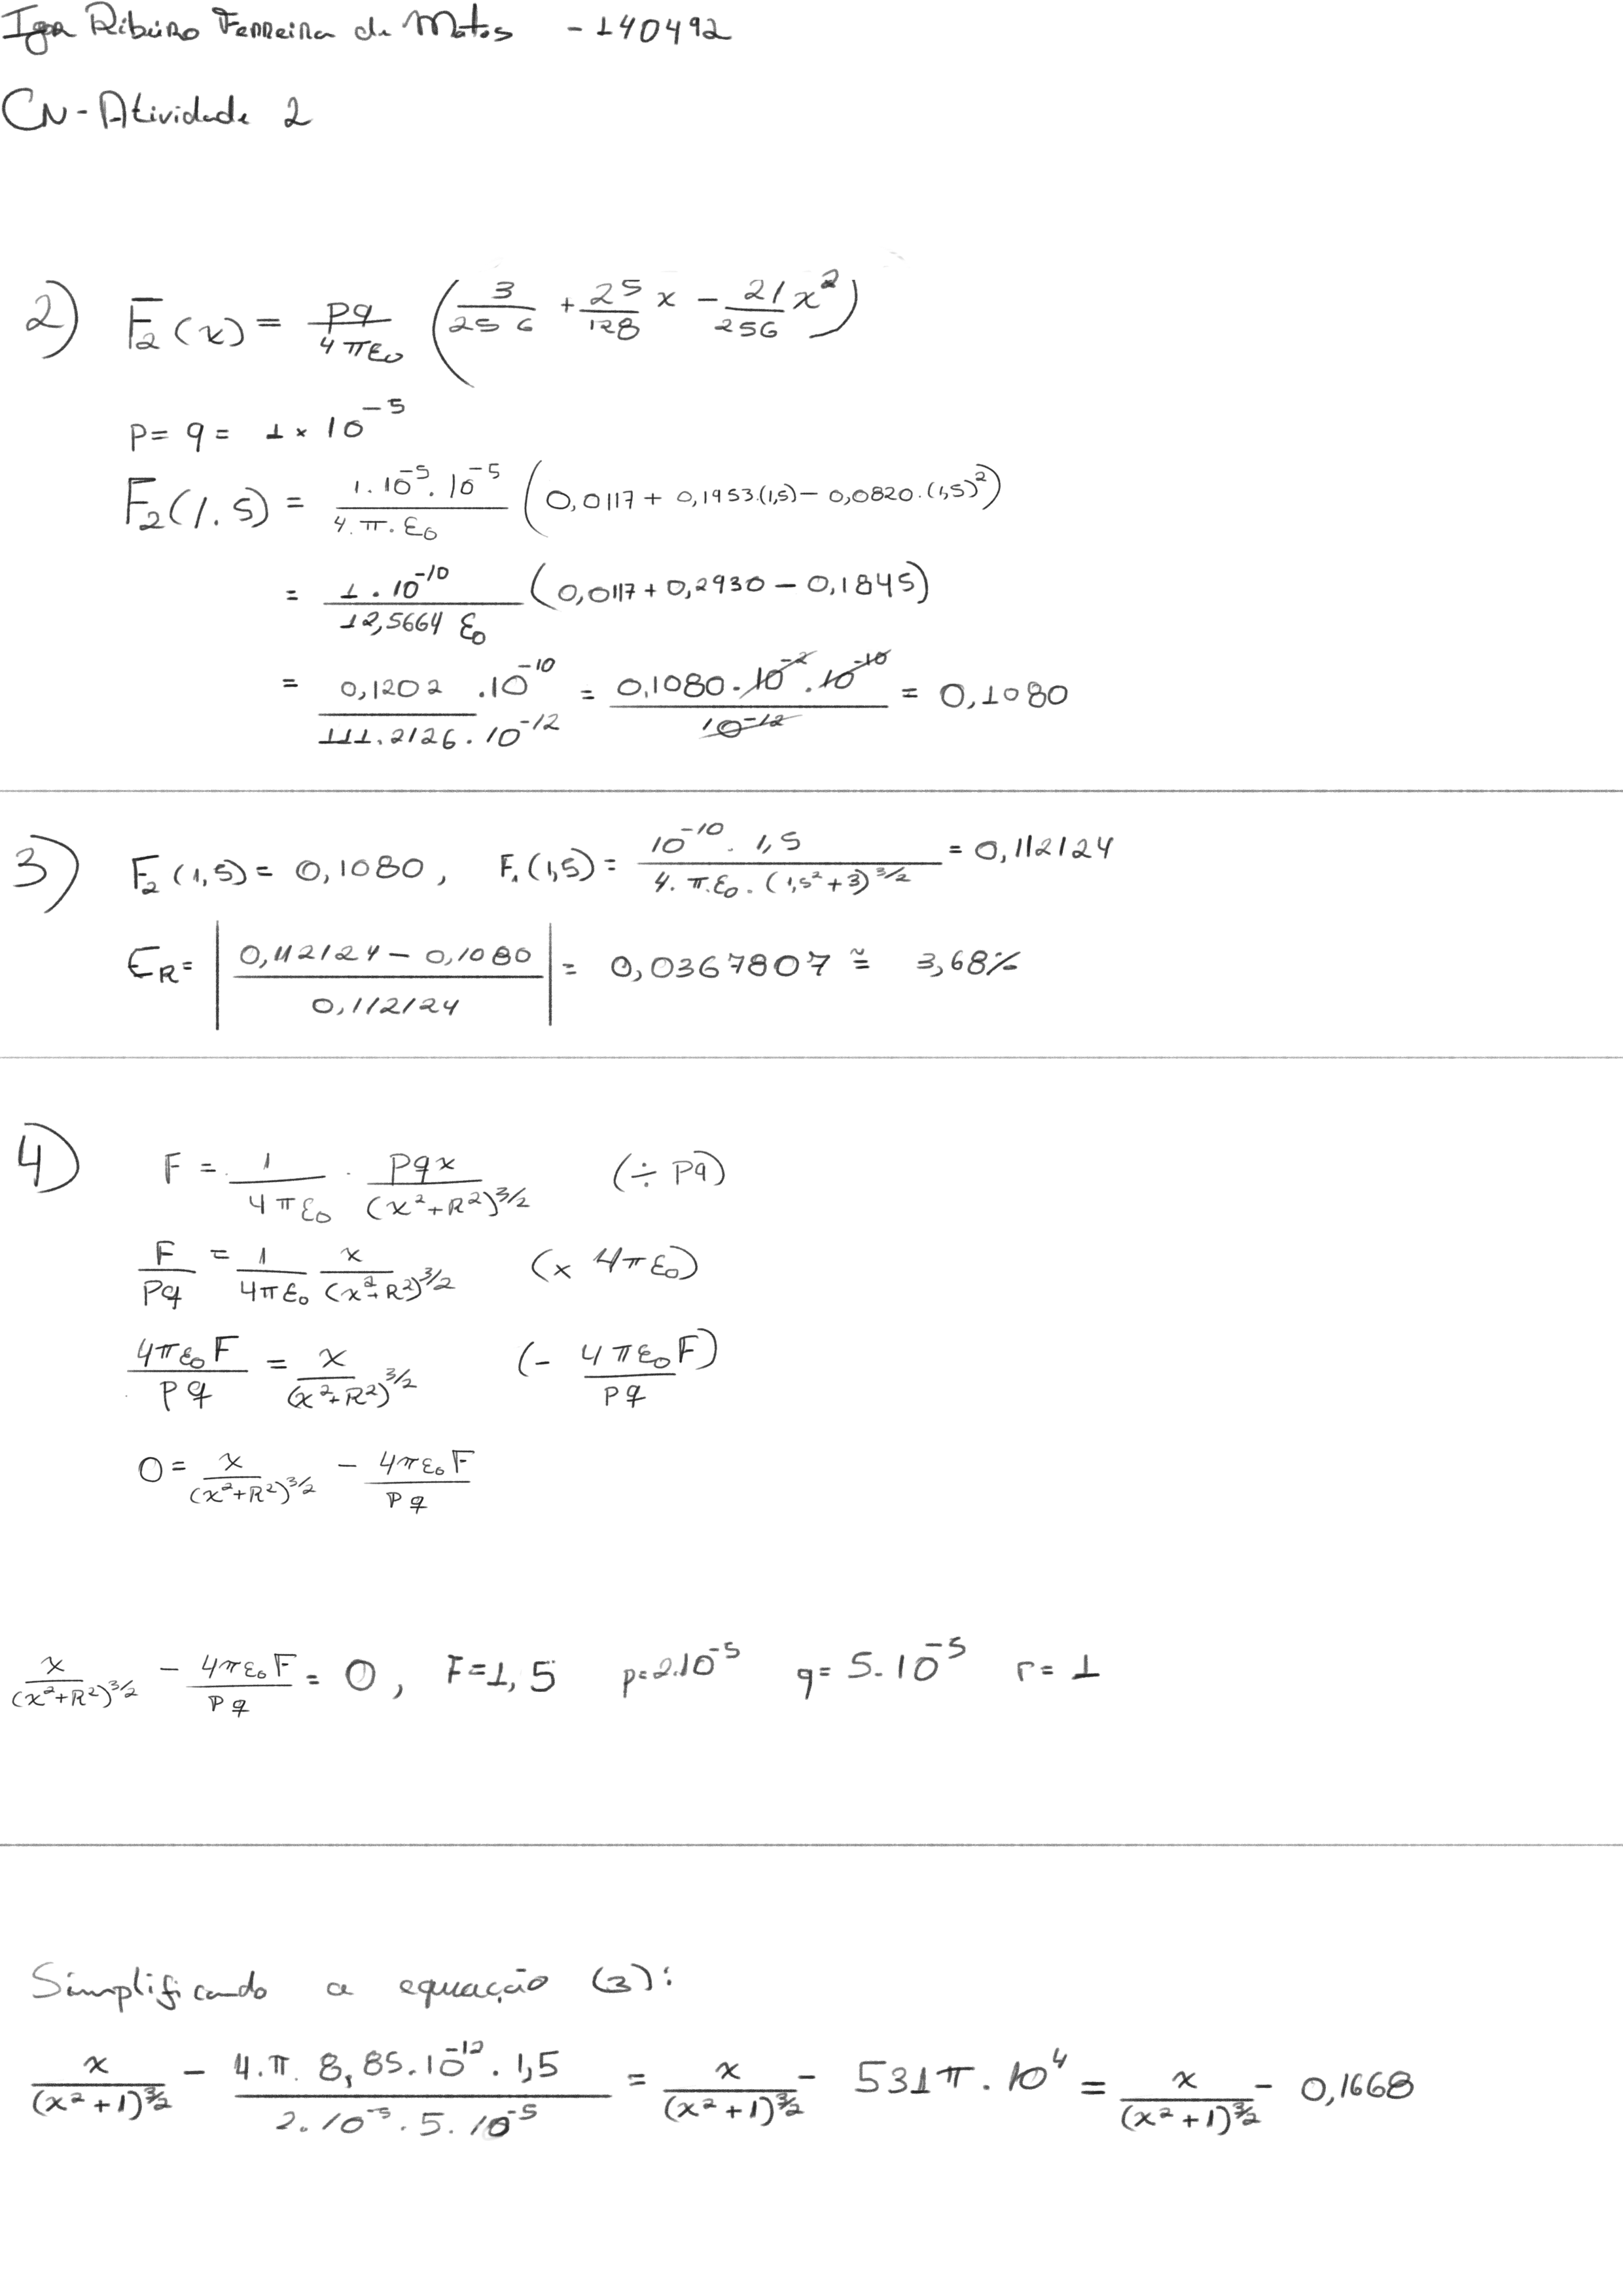 Igor Ribeiro Ferreira de Matos - 140492
CN - Atividade 2
2) F₂(x) = pq/(4πε₀) (3/256 + 25/128 x - 21/256 x²)
p = q = 1 × 10⁻⁵
F₂(1.5) = 1.10⁻⁵.10⁻⁵/(4.π.ε₀) (0,0117 + 0,1953.(1,5) - 0,0820.(1,5)²)
= 1.10⁻¹⁰/(12,5664 ε₀) (0,0117 + 0,2930 - 0,1845)
= 0,1202 .10⁻¹⁰/(111.2126.10⁻¹²) = 0,1080.10⁻².10⁻¹⁰/10⁻¹² = 0,1080
3) F₂(1,5) = 0,1080, F₁(1,5) = 10⁻¹⁰.1,5/(4.π.ε₀.(1,5²+3)^3/2) = 0,112124
ER = |(0,112124 - 0,1080)/0,112124| = 0,0367807 ≅ 3,68%
4) F = 1/(4πε₀) . pqx/(x²+R²)^3/2 (÷ pq)
F/pq = 1/(4πε₀) x/(x²+R²)^3/2 (× 4πε₀)
4πε₀F/pq = x/(x²+R²)^3/2 (- 4πε₀F/pq)
0 = x/(x²+R²)^3/2 - 4πε₀F/pq
x/(x²+R²)^3/2 - 4πε₀F/pq = 0, F=1,5 p=2.10⁻⁵ q=5.10⁻⁵ r=1
Simplificando a equação (3):
x/(x²+1)^3/2 - 4.π.8,85.10⁻¹².1,5/(2.10⁻⁵.5.10⁻⁵) = x/(x²+1)^3/2 - 531π.10⁴ = x/(x²+1)^3/2 - 0,1668